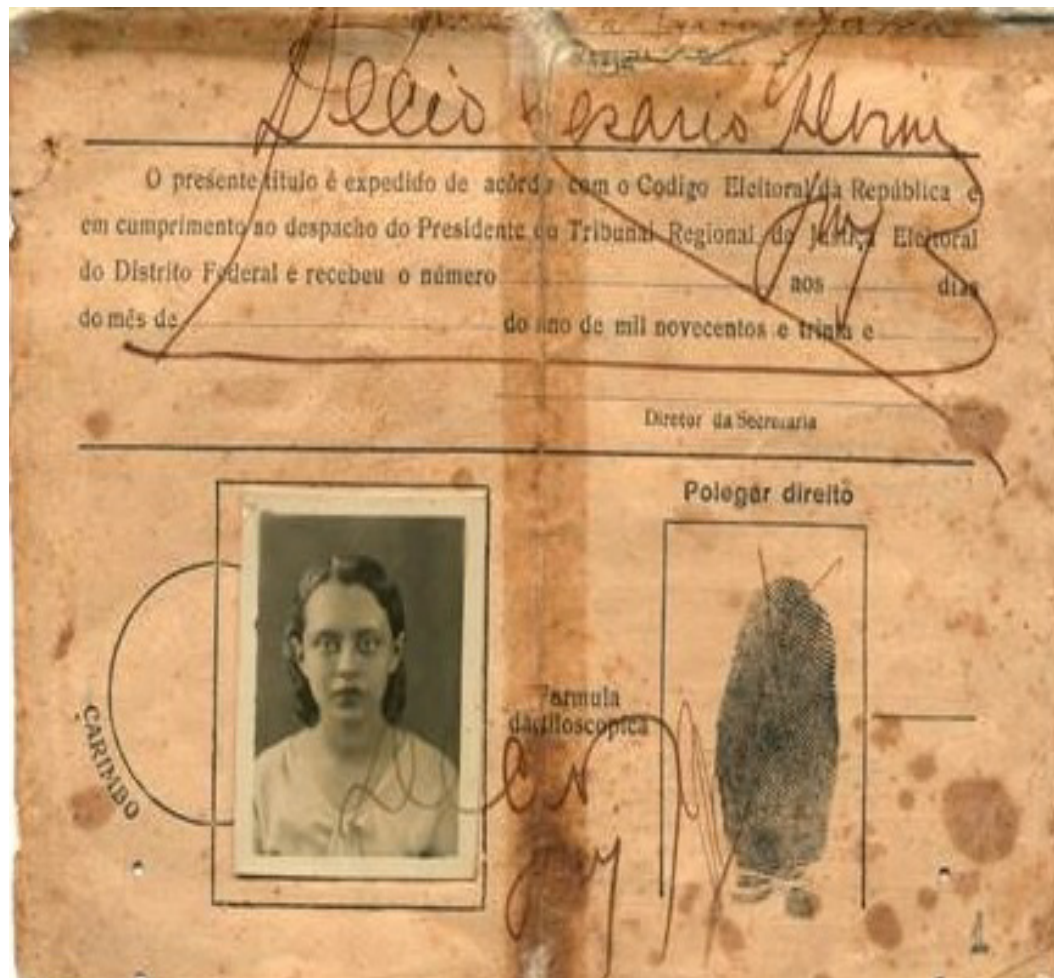 Decio Cesario Alvim
O presente título é expedido de acôrdo com o Codigo Eleitoral da República e
em cumprimento ao despacho do Presidente do Tribunal Regional de Justiça Eleitoral
do Distrito Federal e recebeu o número ........ aos ........ dias
do mês de ........ do ano de mil novecentos e trinta e ........
Diretor da Secretaria
Polegar direito
CARIMBO
Formula
dactiloscopica
Decio
1